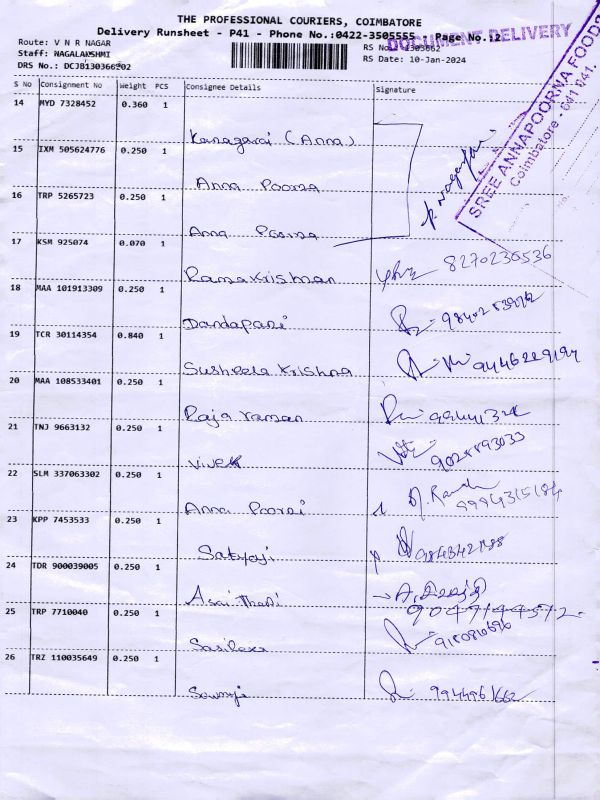 THE PROFESSIONAL COURIERS, COIMBATORE
Delivery Runsheet - P41 - Phone No.:0422-3505555 Page No.:2
DOCUMENT DELIVERY
Route: V N R NAGAR
Staff: NAGALAKSHMI
RS No.: 1303662
DRS No.: DCJB130366202
RS Date: 10-Jan-2024
SREE ANNAPOORNA FOODS
Coimbatore - 641 041.
S No Consignment No Weight PCS Consignee Details Signature
14 MYD 7328452 0.360 1
Kanagaraj (Anna)
15 IXM 505624776 0.250 1
Anna Poorna
16 TRP 5265723 0.250 1
Anna Poorna
17 KSM 925074 0.070 1
Ramakrishnan 8270236536
18 MAA 101913309 0.250 1
Dandapani
19 TCR 30114354 0.840 1
Susheela Krishna 9446229194
20 MAA 108533401 0.250 1
Raja raman
21 TNJ 9663132 0.250 1
Vivek
22 SLM 337063302 0.250 1
Anna Poorni 9994315184
23 KPP 7453533 0.250 1
24 TDR 900039005 0.250 1
25 TRP 7710040 0.250 1
26 TRZ 110035649 0.250 1
Sowmji 9944961662